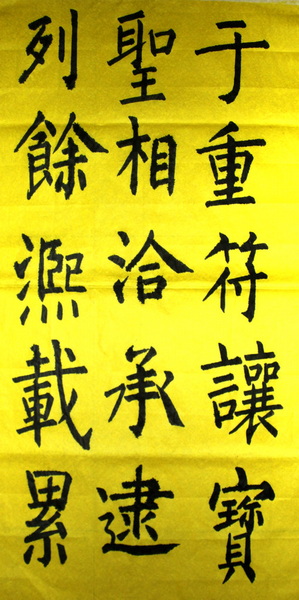 于重符讓寶
聖相洽承逮
列餘凞載累